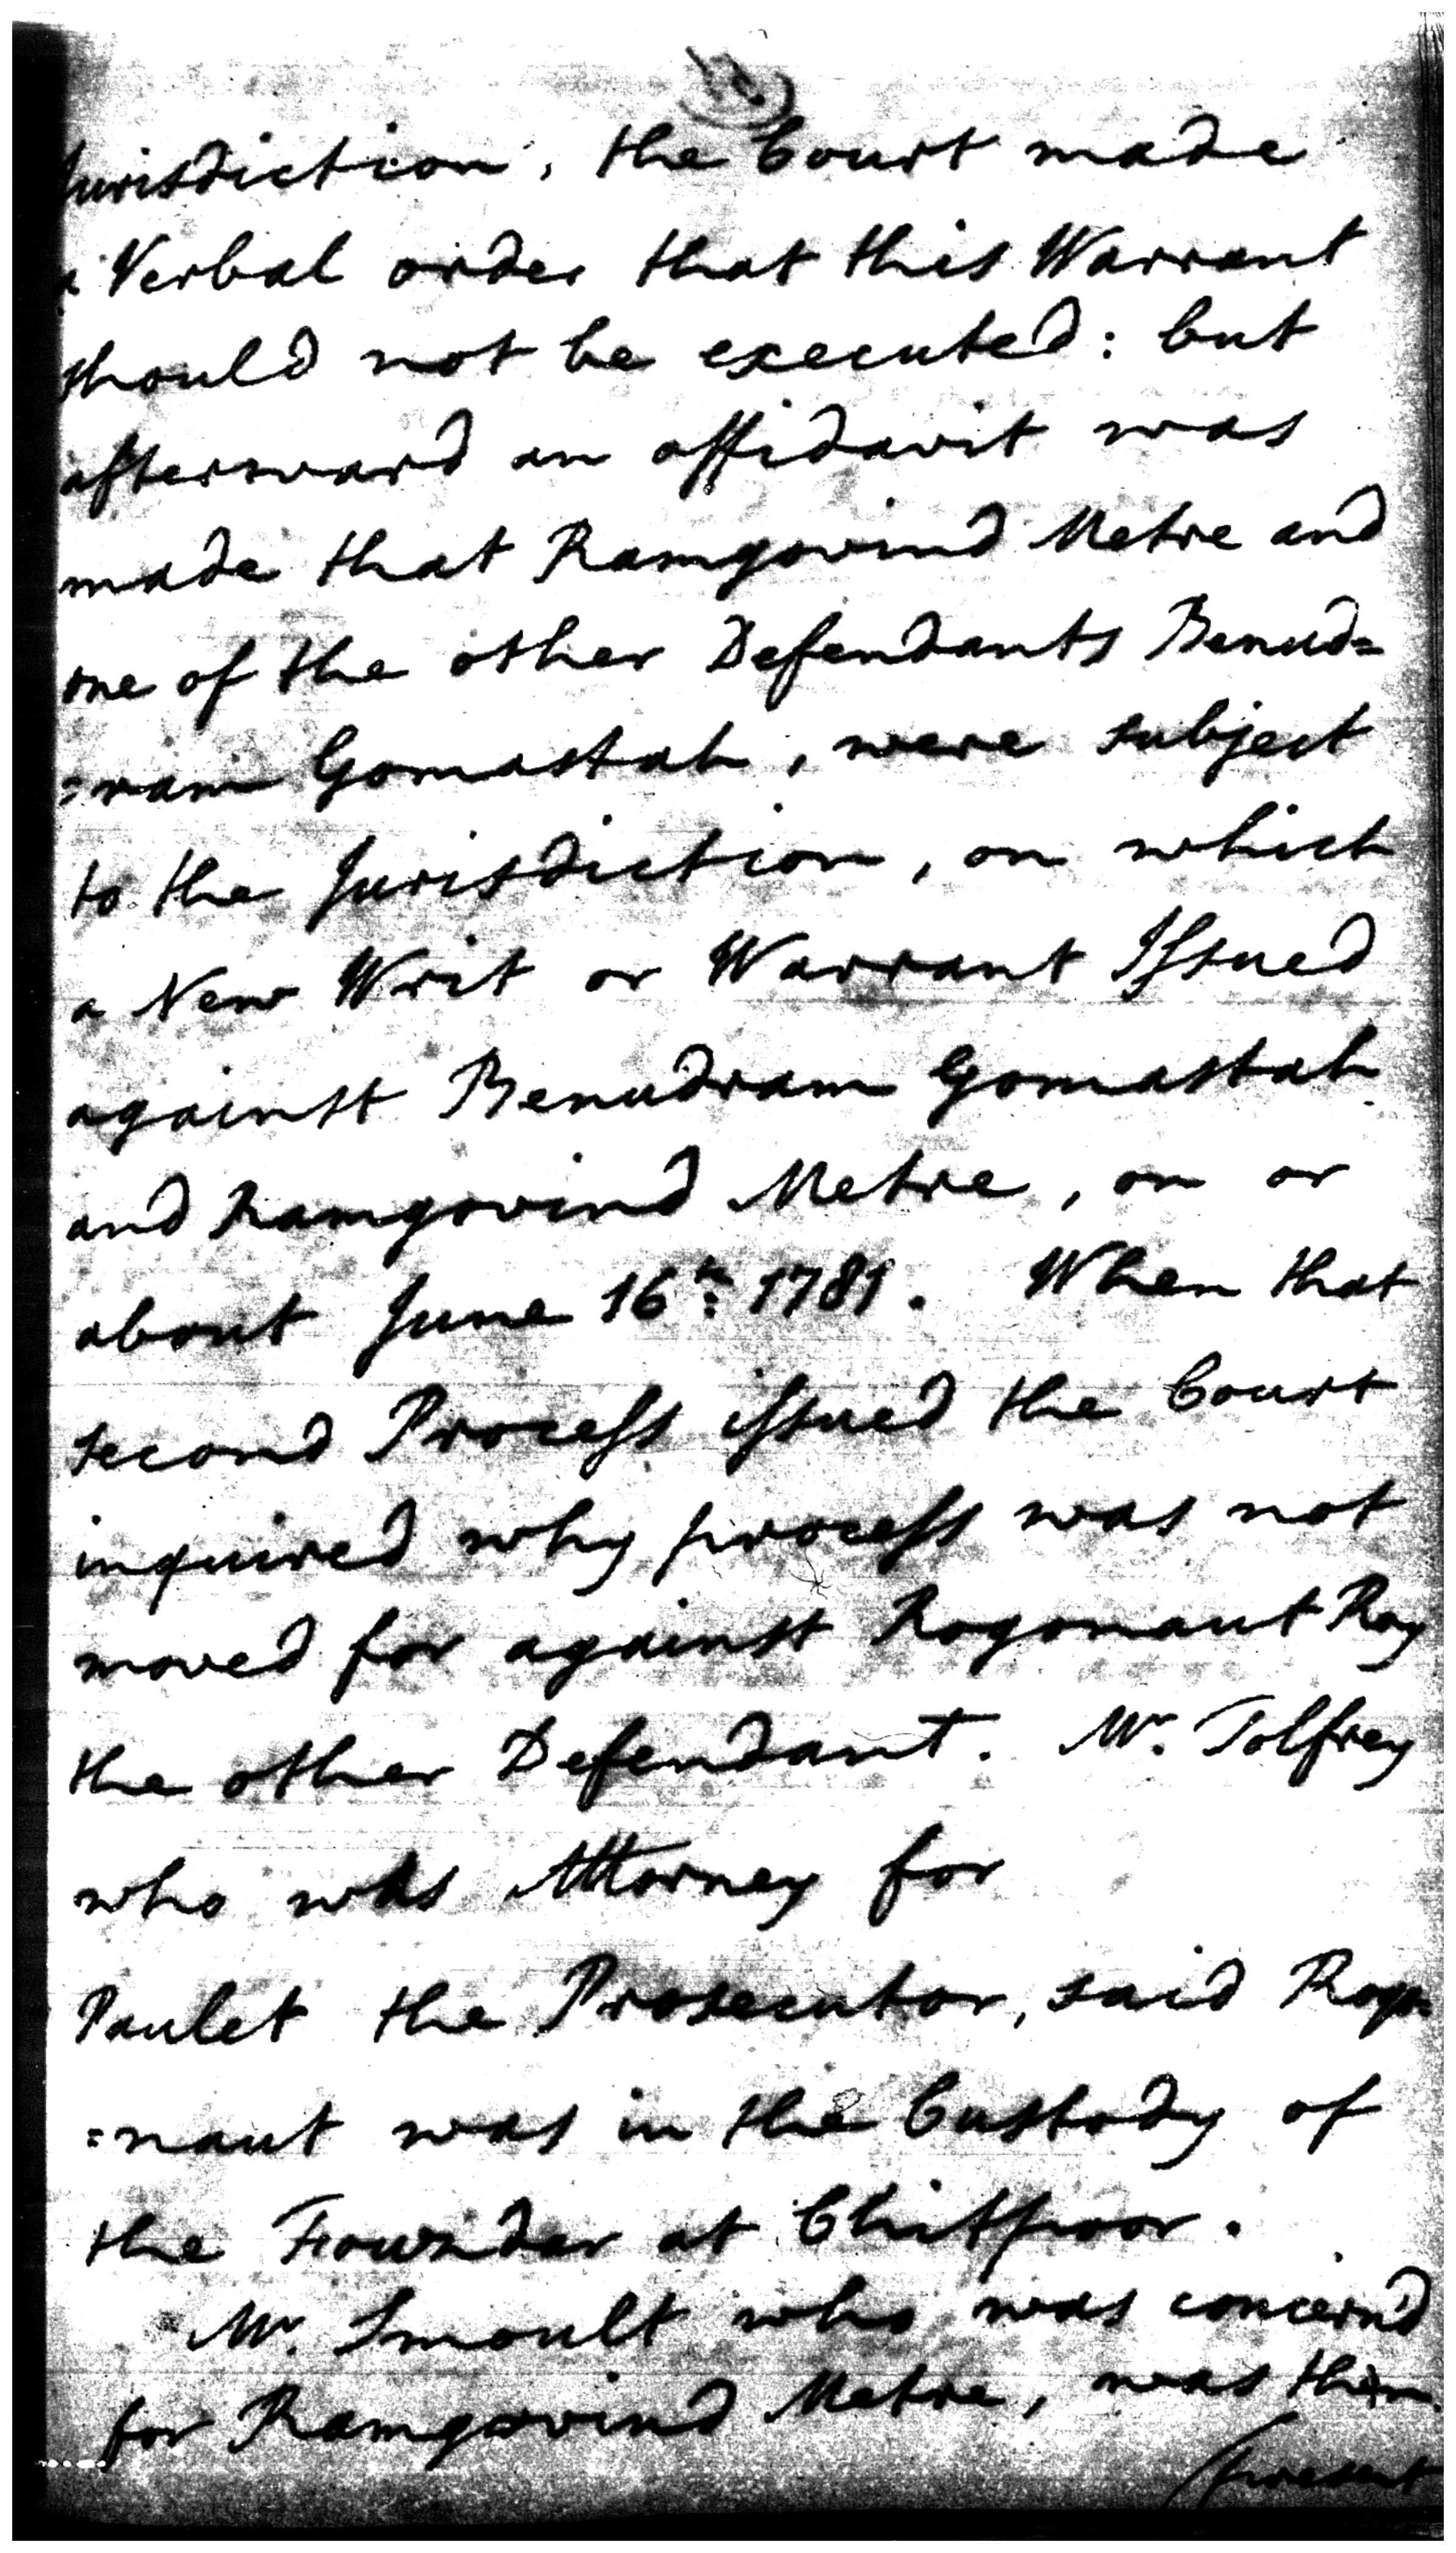 Jurisdiction, the Court made
a Verbal order that this Warrant
should not be executed: but
afterward an affidavit was
made that Ramgovind Metre and
one of the other Defendants Benud=
=ram Gomastah, were subject
to the Jurisdiction, on which
a New Writ or Warrant Issued
against Benudram Gomastah
and Ramgovind Metre, on or
about June 16th 1781. When that
second Process issued the Court
inquired why process was not
moved for against Rogonaut Ray
the other Defendant. Mr. Tolfrey
who was Attorney for
Paulet the Prosecutor, said Rogo=
=naut was in the Custody of
the Fowzdar at Chitpoor.
Mr. Smoult who was concern'd
for Ramgovind Metre, was then
present